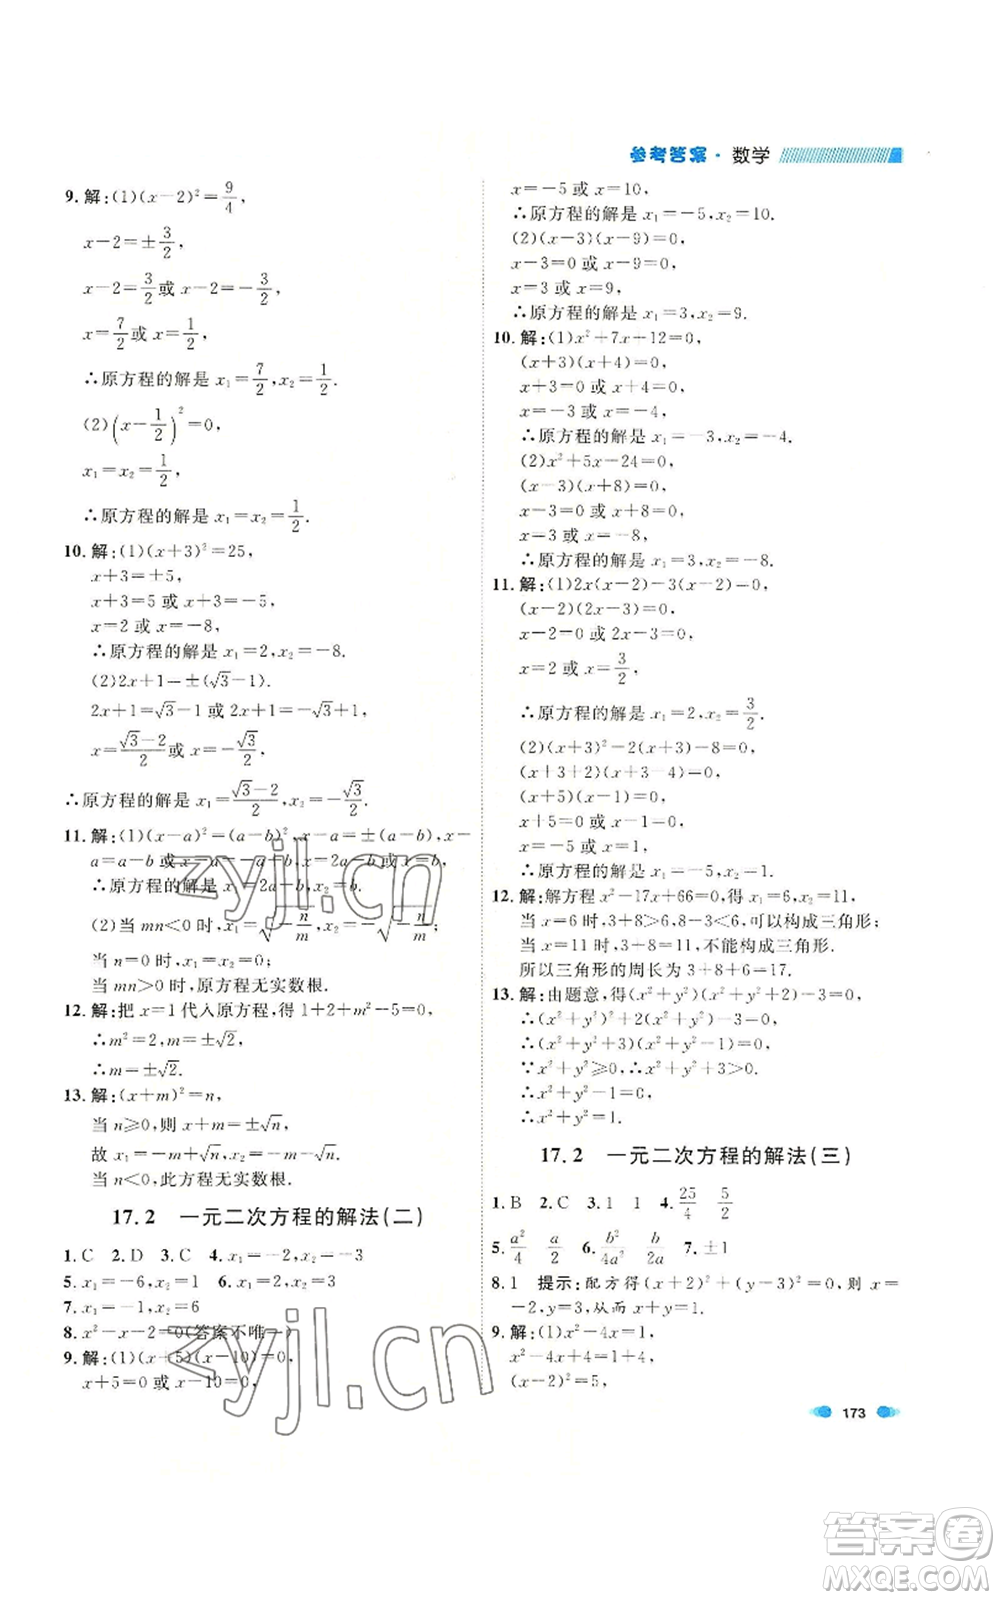 参考答案·数学
9. 解:(1)(x-2)²=9/4,
x-2=±3/2,
x-2=3/2或x-2=-3/2,
x=7/2或x=1/2,
∴原方程的解是 x₁=7/2,x₂=1/2.
(2)(x-1/2)²=0,
x₁=x₂=1/2,
∴原方程的解是 x₁=x₂=1/2.
10. 解:(1)(x+3)²=25,
x+3=±5,
x+3=5 或 x+3=-5,
x=2 或 x=-8,
∴原方程的解是 x₁=2,x₂=-8.
(2)2x+1=±(√3-1).
2x+1=√3-1 或 2x+1=-√3+1,
x=(√3-2)/2或 x=-√3/2,
∴原方程的解是 x₁=(√3-2)/2,x₂=-√3/2.
11. 解:(1)(x-a)²=(a-b)²,x-a=±(a-b),x-
a=a-b 或 x-a=-a+b,
∴原方程的解是 x₁=2a-b,x₂=b.
(2)当 mn<0 时,x₁=√(-n/m),x₂=-√(-n/m),
当 n=0 时,x₁=x₂=0;
当 mn>0 时,原方程无实数根.
12. 解:把 x=1 代入原方程,得 1+2+m²=5,
∴m²=2,m=±√2,
∴m=±√2.
13. 解:(x+m)²=n,
当 n≥0,则 x+m=±√n,
故 x₁=-m+√n,x₂=-m-√n;
当 n<0,此方程无实数根.
17.2 一元二次方程的解法(二)
1. C 2. D 3. C 4. x₁=-2,x₂=-3
5. x₁=-6,x₂=1 6. x₁=0,x₂=3
7. x₁=-1,x₂=6
8. x²-x-2=0(答案不唯一)
9. 解:(1)(x+5)(x-10)=0,
x+5=0 或 x-10=0,
x=-5 或 x=10,
∴原方程的解是 x₁=-5,x₂=10.
(2)(x-3)(x-9)=0,
x-3=0 或 x-9=0,
x=3 或 x=9,
∴原方程的解是 x₁=3,x₂=9.
10. 解:(1)x²+7x+12=0,
(x+3)(x+4)=0,
x+3=0 或 x+4=0,
x=-3 或 x=-4,
∴原方程的解是 x₁=-3,x₂=-4.
(2)x²+5x-24=0,
(x-3)(x+8)=0,
x-3=0 或 x+8=0,
x=3 或 x=-8,
∴原方程的解是 x₁=3,x₂=-8.
11. 解:(1)2x(x-2)-3(x-2)=0,
(x-2)(2x-3)=0,
x-2=0 或 2x-3=0,
x=2 或 x=3/2,
∴原方程的解是 x₁=2,x₂=3/2.
(2)(x+3)²-2(x+3)-8=0,
(x+3+2)(x+3-4)=0,
(x+5)(x-1)=0,
x+5=0 或 x-1=0,
x=-5 或 x=1,
∴原方程的解是 x₁=-5,x₂=1.
12. 解:解方程 x²-17x+66=0,得 x₁=6,x₂=11,
当 x=6 时,3+8>6,8-3<6,可以构成三角形;
当 x=11 时,3+8=11,不能构成三角形.
所以三角形的周长为 3+8+6=17.
13. 解:由题意,得(x²+y²)(x²+y²+2)=3,
∴(x²+y²)²+2(x²+y²)-3=0,
∴(x²+y²+3)(x²+y²-1)=0,
∵x²+y²≥0,∴x²+y²+3>0,
∴x²+y²-1=0,
∴x²+y²=1.
17.2 一元二次方程的解法(三)
1. B 2. C 3. 1 1 4. 25/4 5/2
5. a²/4 a/2 6. b²/4a² b/2a 7. ±1
8. 1 提示:配方得(x+2)²+(y-3)²=0,则 x=
-2,y=3,从而 x+y=1.
9. 解:(1)x²-4x=1,
x²-4x+4=1+4,
(x-2)²=5,
173
zyjl.cn
zyjl.cn
答案圈
MXQE.COM